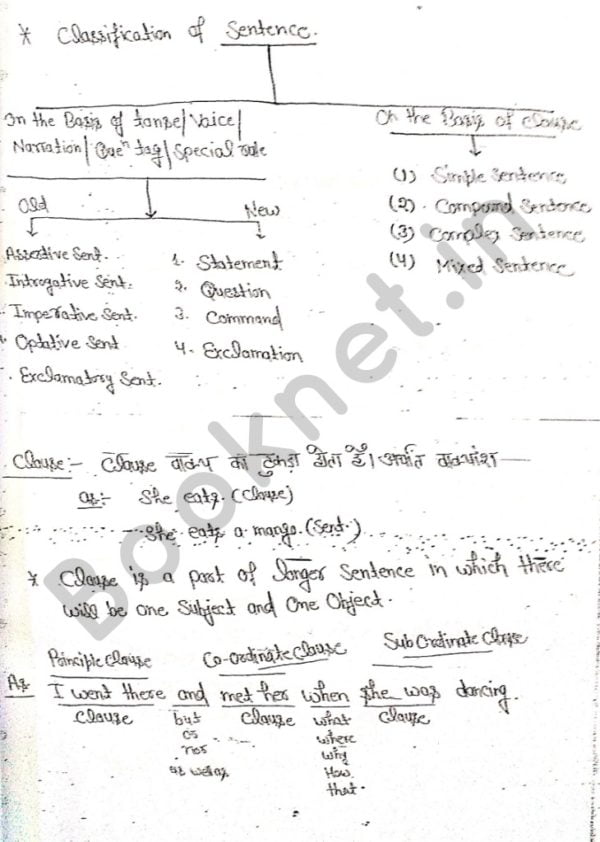 * Classification of Sentence.
On the Basis of tense/Voice/
Narration/Quen tag/Special rule
Old
New
Assertive Sent.
Introgative Sent.
Imperative Sent.
Optative Sent
Exclamatory Sent.
1. Statement
2. Question
3. Command
4. Exclamation
On the Basis of clause
(1) Simple Sentence
(2) Compound Sentence
(3) Complex Sentence
(4) Mixed Sentence
Clause:- Clause वाक्य का टुकड़ा होता है। अर्थात वाक्यांश —
as:- She eats. (Clause)
She eats a mango. (Sent.)
* Clause is a part of longer Sentence in which there
will be one Subject and One Object.
Principle Clause Co-ordinate Clause Sub Ordinate Clause
As I went there and met her when she was dancing.
Clause but Clause what Clause
or where
nor why
as well as How
that.
Booknet.in